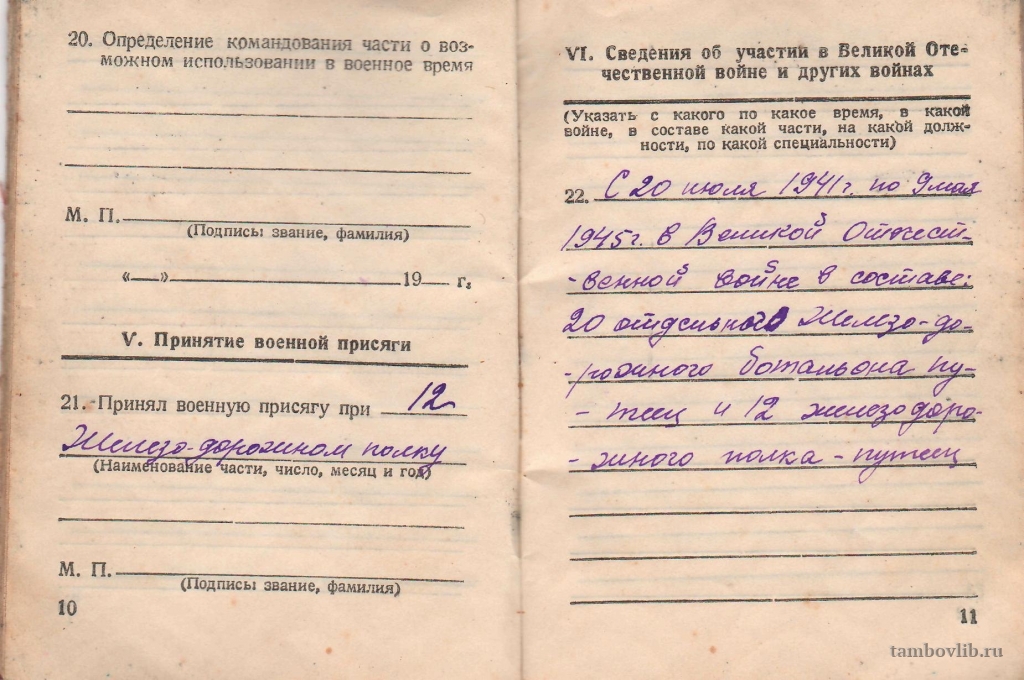 20. Определение командования части о воз-
можном использовании в военное время
М. П.
(Подпись: звание, фамилия)
«—» 19 г.
V. Принятие военной присяги
21. Принял военную присягу при 12
Железо-дорожном полку
(Наименование части, число, месяц и год)
М. П.
(Подпись: звание, фамилия)
10
VI. Сведения об участии в Великой Оте-
чественной войне и других войнах
(Указать с какого по какое время, в какой
войне, в составе какой части, на какой долж-
ности, по какой специальности)
22. С 20 июля 1941 г. по 9 мая
1945 г. в Великой Отечест-
-венной войне в составе:
20 отдельного Железо-до-
-рожного ботальона пу-
-теец и 12 железодоро-
-жного полка - путеец
11
tambovlib.ru